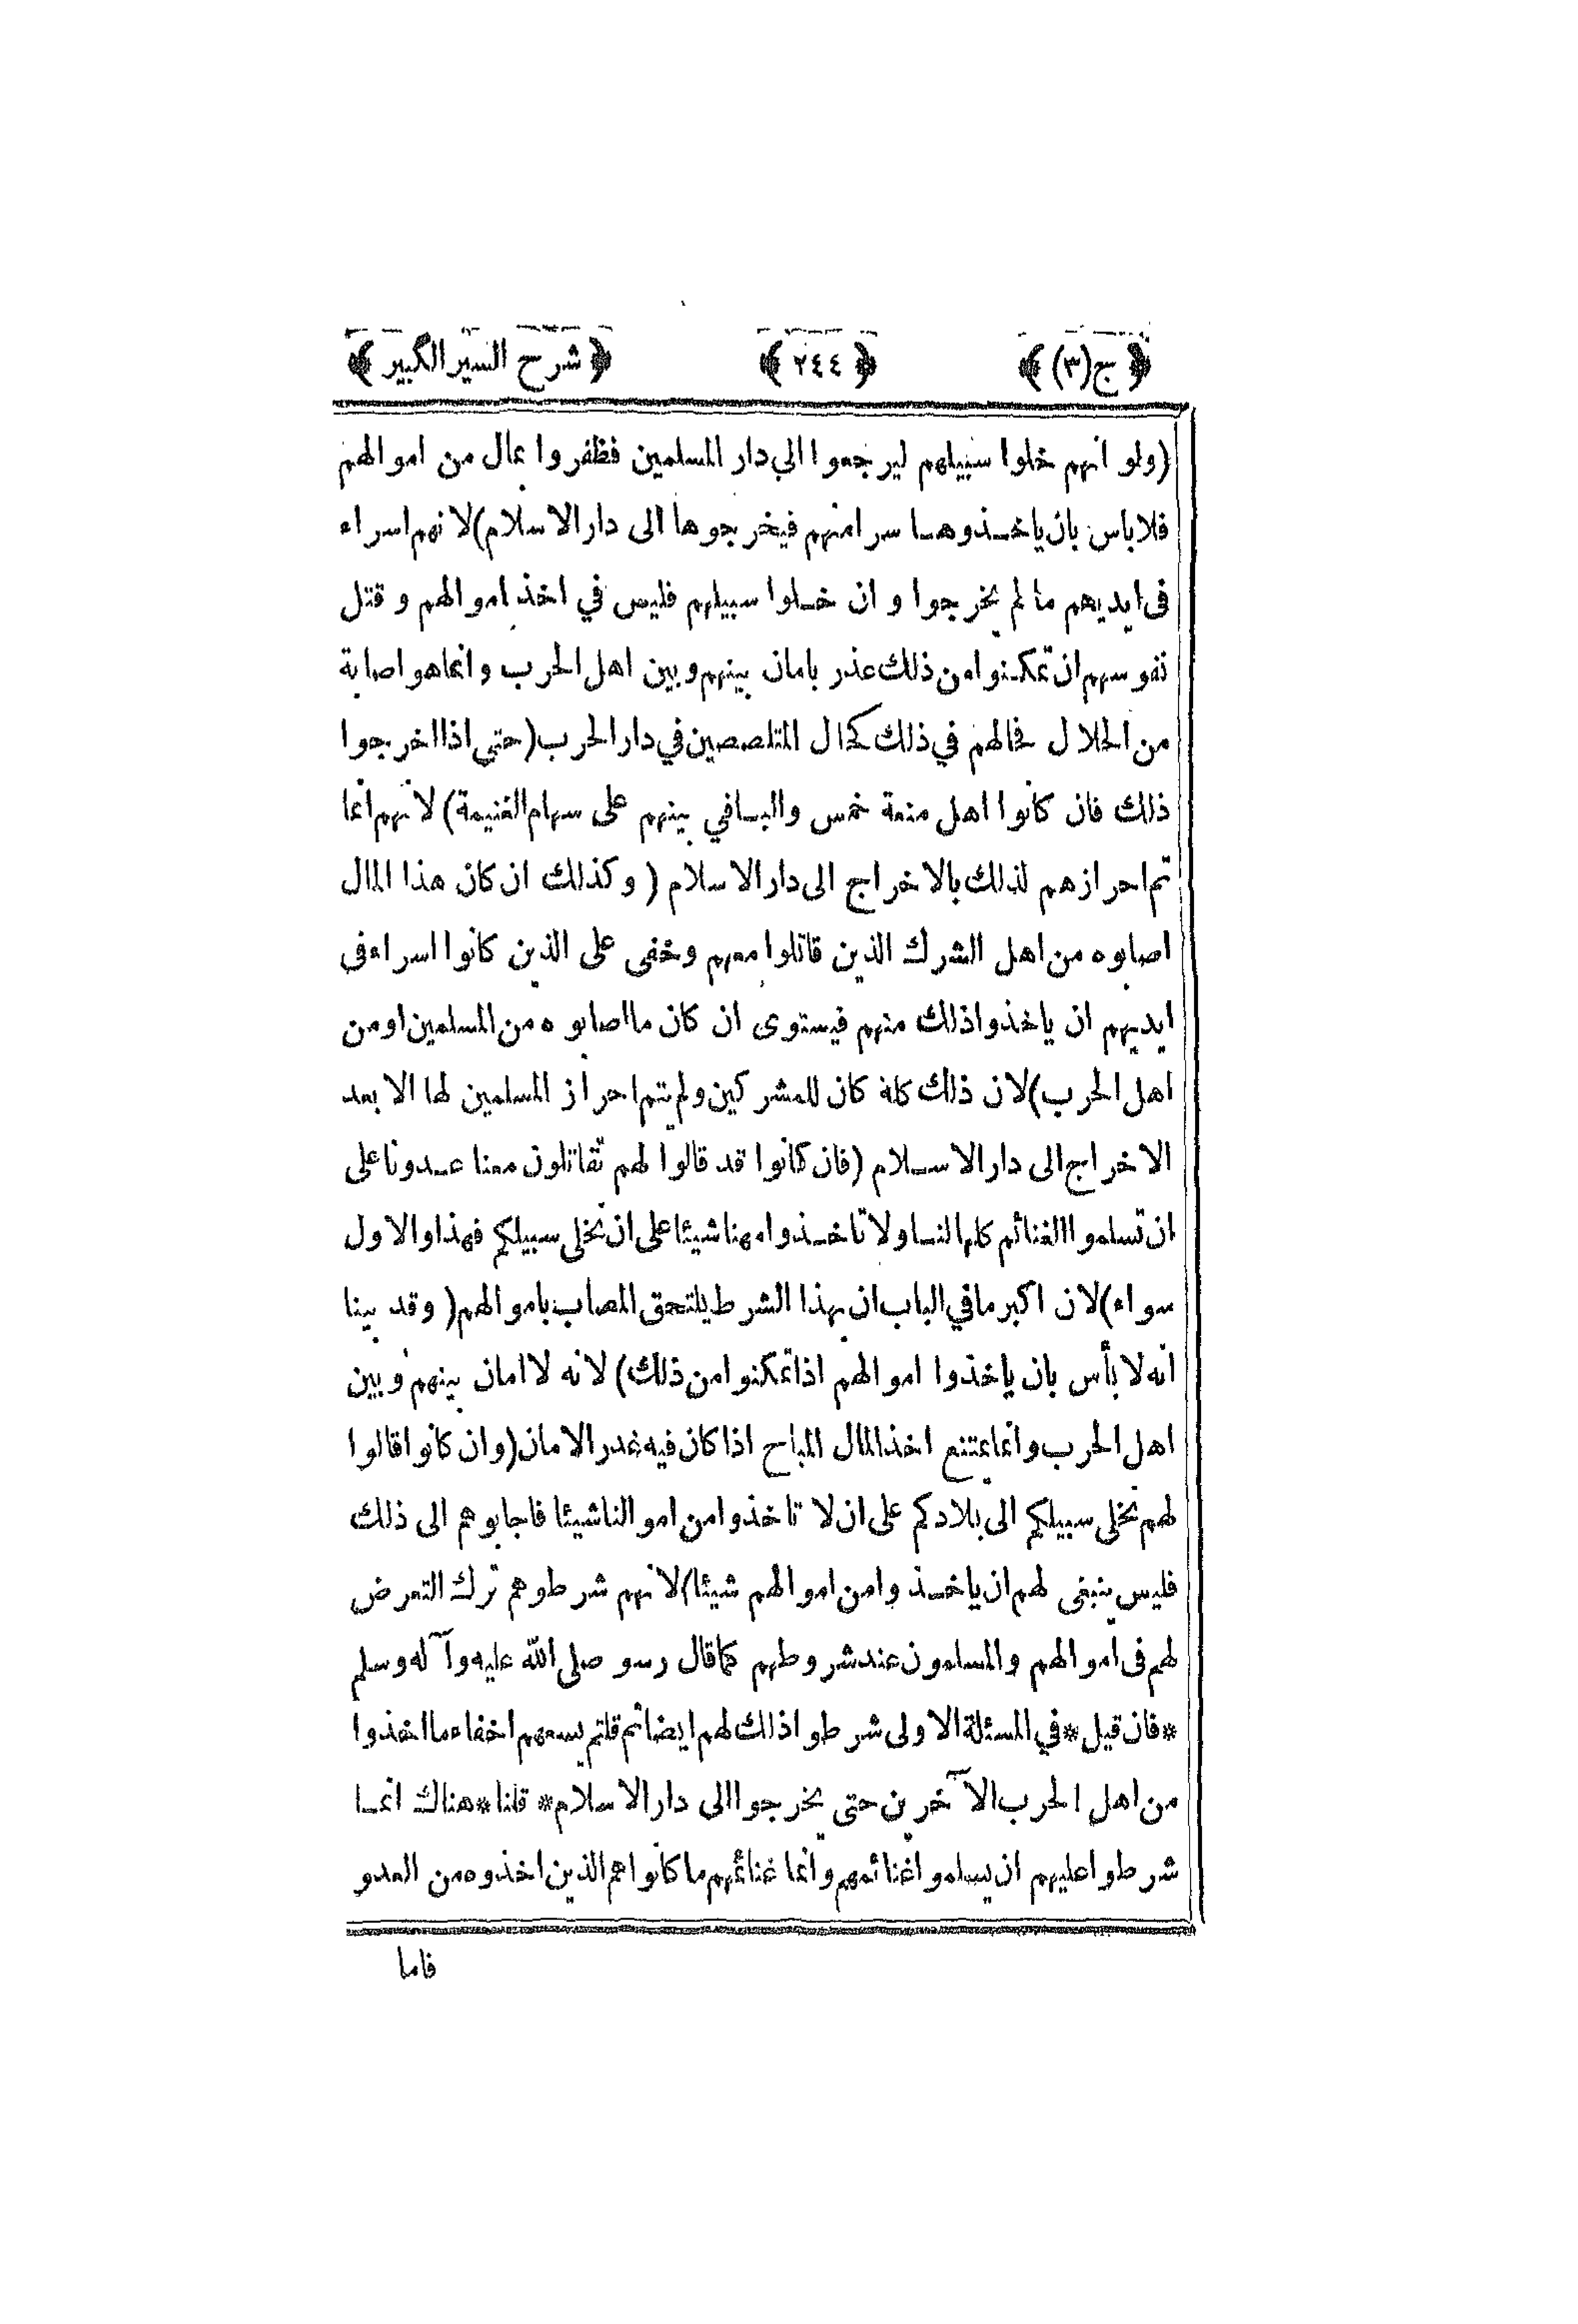 ﴿ ج(٣) ﴾ ﴿ ٢٤٤ ﴾ ﴿ شرح السير الكبير ﴾
(ولو انهم خلوا سبيلهم ليرجعوا الى دار المسلمين فظفروا بمال من اموالهم
فلا باس بان ياخذوها سرا منهم فيخرجوها الى دار الاسلام) لانهم اسراء
فى ايديهم ما لم يخرجوا و ان خلوا سبيلهم فليس في اخذ اموالهم و قتل
نفوسهم ان تمكنوا من ذلك عذر بامان بينهم و بين اهل الحرب و انما هو اصابة
من الحلال فحالهم في ذلك كحال المتلصصين في دار الحرب (حتى اذا اخرجوا
ذلك فان كانوا اهل منعة خمس والباقي بينهم على سهام الغنيمة) لانهم انما
تم احرازهم لذلك بالاخراج الى دار الاسلام ( و كذلك ان كان هذا المال
اصابوه من اهل الشرك الذين قاتلوا معهم وخفى على الذين كانوا اسراء فى
ايديهم ان ياخذوا ذلك منهم فيستوى ان كان ما اصابوه من المسلمين او من
اهل الحرب) لان ذلك كله كان للمشركين ولم يتم احراز المسلمين لها الا بعد
الاخراج الى دار الاسلام (فان كانوا قد قالوا لهم تقاتلون معنا عدونا على
ان تسلموا الغنائم كلها لنا و لا تاخذوا مهنا شيئا على ان نخلى سبيلكم فهذا و الاول
سواء) لان اكبر ما في الباب ان بهذا الشرط يلتحق المصاب باموالهم ( وقد بينا
انه لا بأس بان ياخذوا اموالهم اذا تمكنوا من ذلك) لانه لا امان بينهم و بين
اهل الحرب و انما يمتنع اخذ المال المباح اذا كان فيه غدر الامان (و ان كانوا قالوا
لهم نخلى سبيلكم الى بلادكم على ان لا تاخذوا من اموالنا شيئا فاجابوهم الى ذلك
فليس ينبغى لهم ان ياخذوا من اموالهم شيئا) لانهم شرطوهم ترك التعرض
لهم فى اموالهم والمسلمون عند شروطهم كما قال رسو صلى الله عليه و آله وسلم
*فان قيل* في المسئلة الاولى شرطوا ذلك لهم ايضا ثم قلتم يسعهم اخفاء ما اخذوا
من اهل الحرب الآخرين حتى يخرجوا الى دار الاسلام* قلنا* هناك انما
شرطوا عليهم ان يسلموا غنائمهم و انما غنائمهم ما كانوا هم الذين اخذوه من العدو
فاما